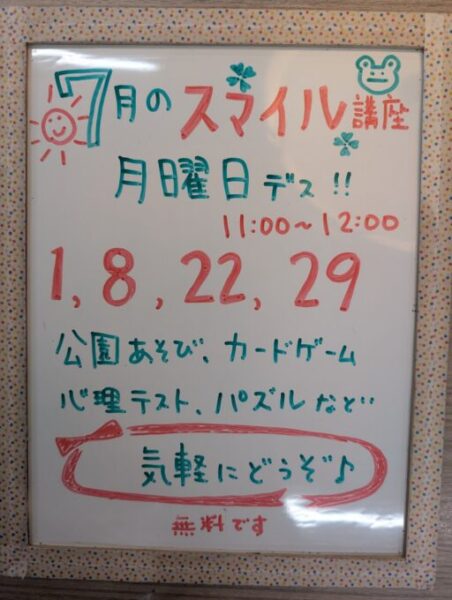 7月のスマイル講座
月曜日デス!!
11:00～12:00
1,8,22,29
公園あそび、カードゲーム
心理テスト、パズルなど…
気軽にどうぞ♪
無料です